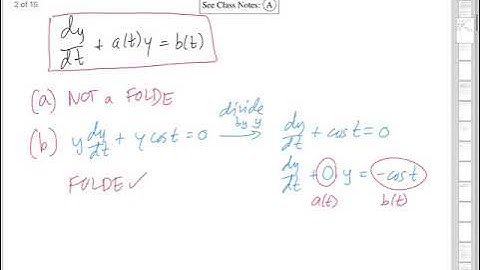 2 of 15
See Class Notes: A
dy/dt + a(t)y = b(t)
(a) NOT a FOLDE
(b) y dy/dt + y cos t = 0 divide by y → dy/dt + cos t = 0
dy/dt + 0 y = -cos t
FOLDE ✓
a(t) b(t)